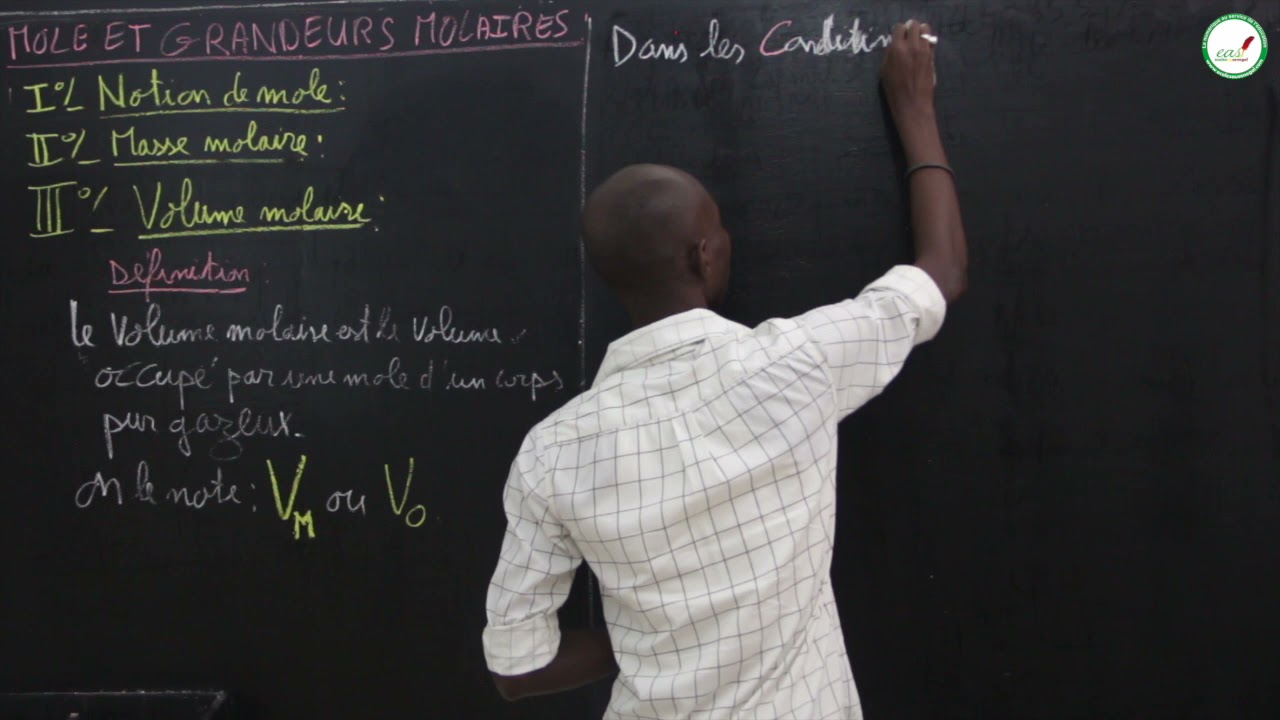 MOLE ET GRANDEURS MOLAIRES
I°/_ Notion de mole :
II°/_ Masse molaire :
III°/_ Volume molaire :
Définition :
Le Volume molaire est le volume
occupé par une mole d'un corps
pur gazeux.
On le note : V_M ou V_0
Dans les Condition
eas
www.ecolesausenegal.com